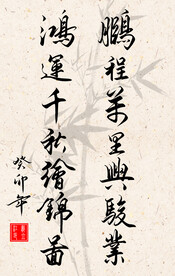 鵬程萬里興駿業
鴻運千秋繪錦圖
癸卯年